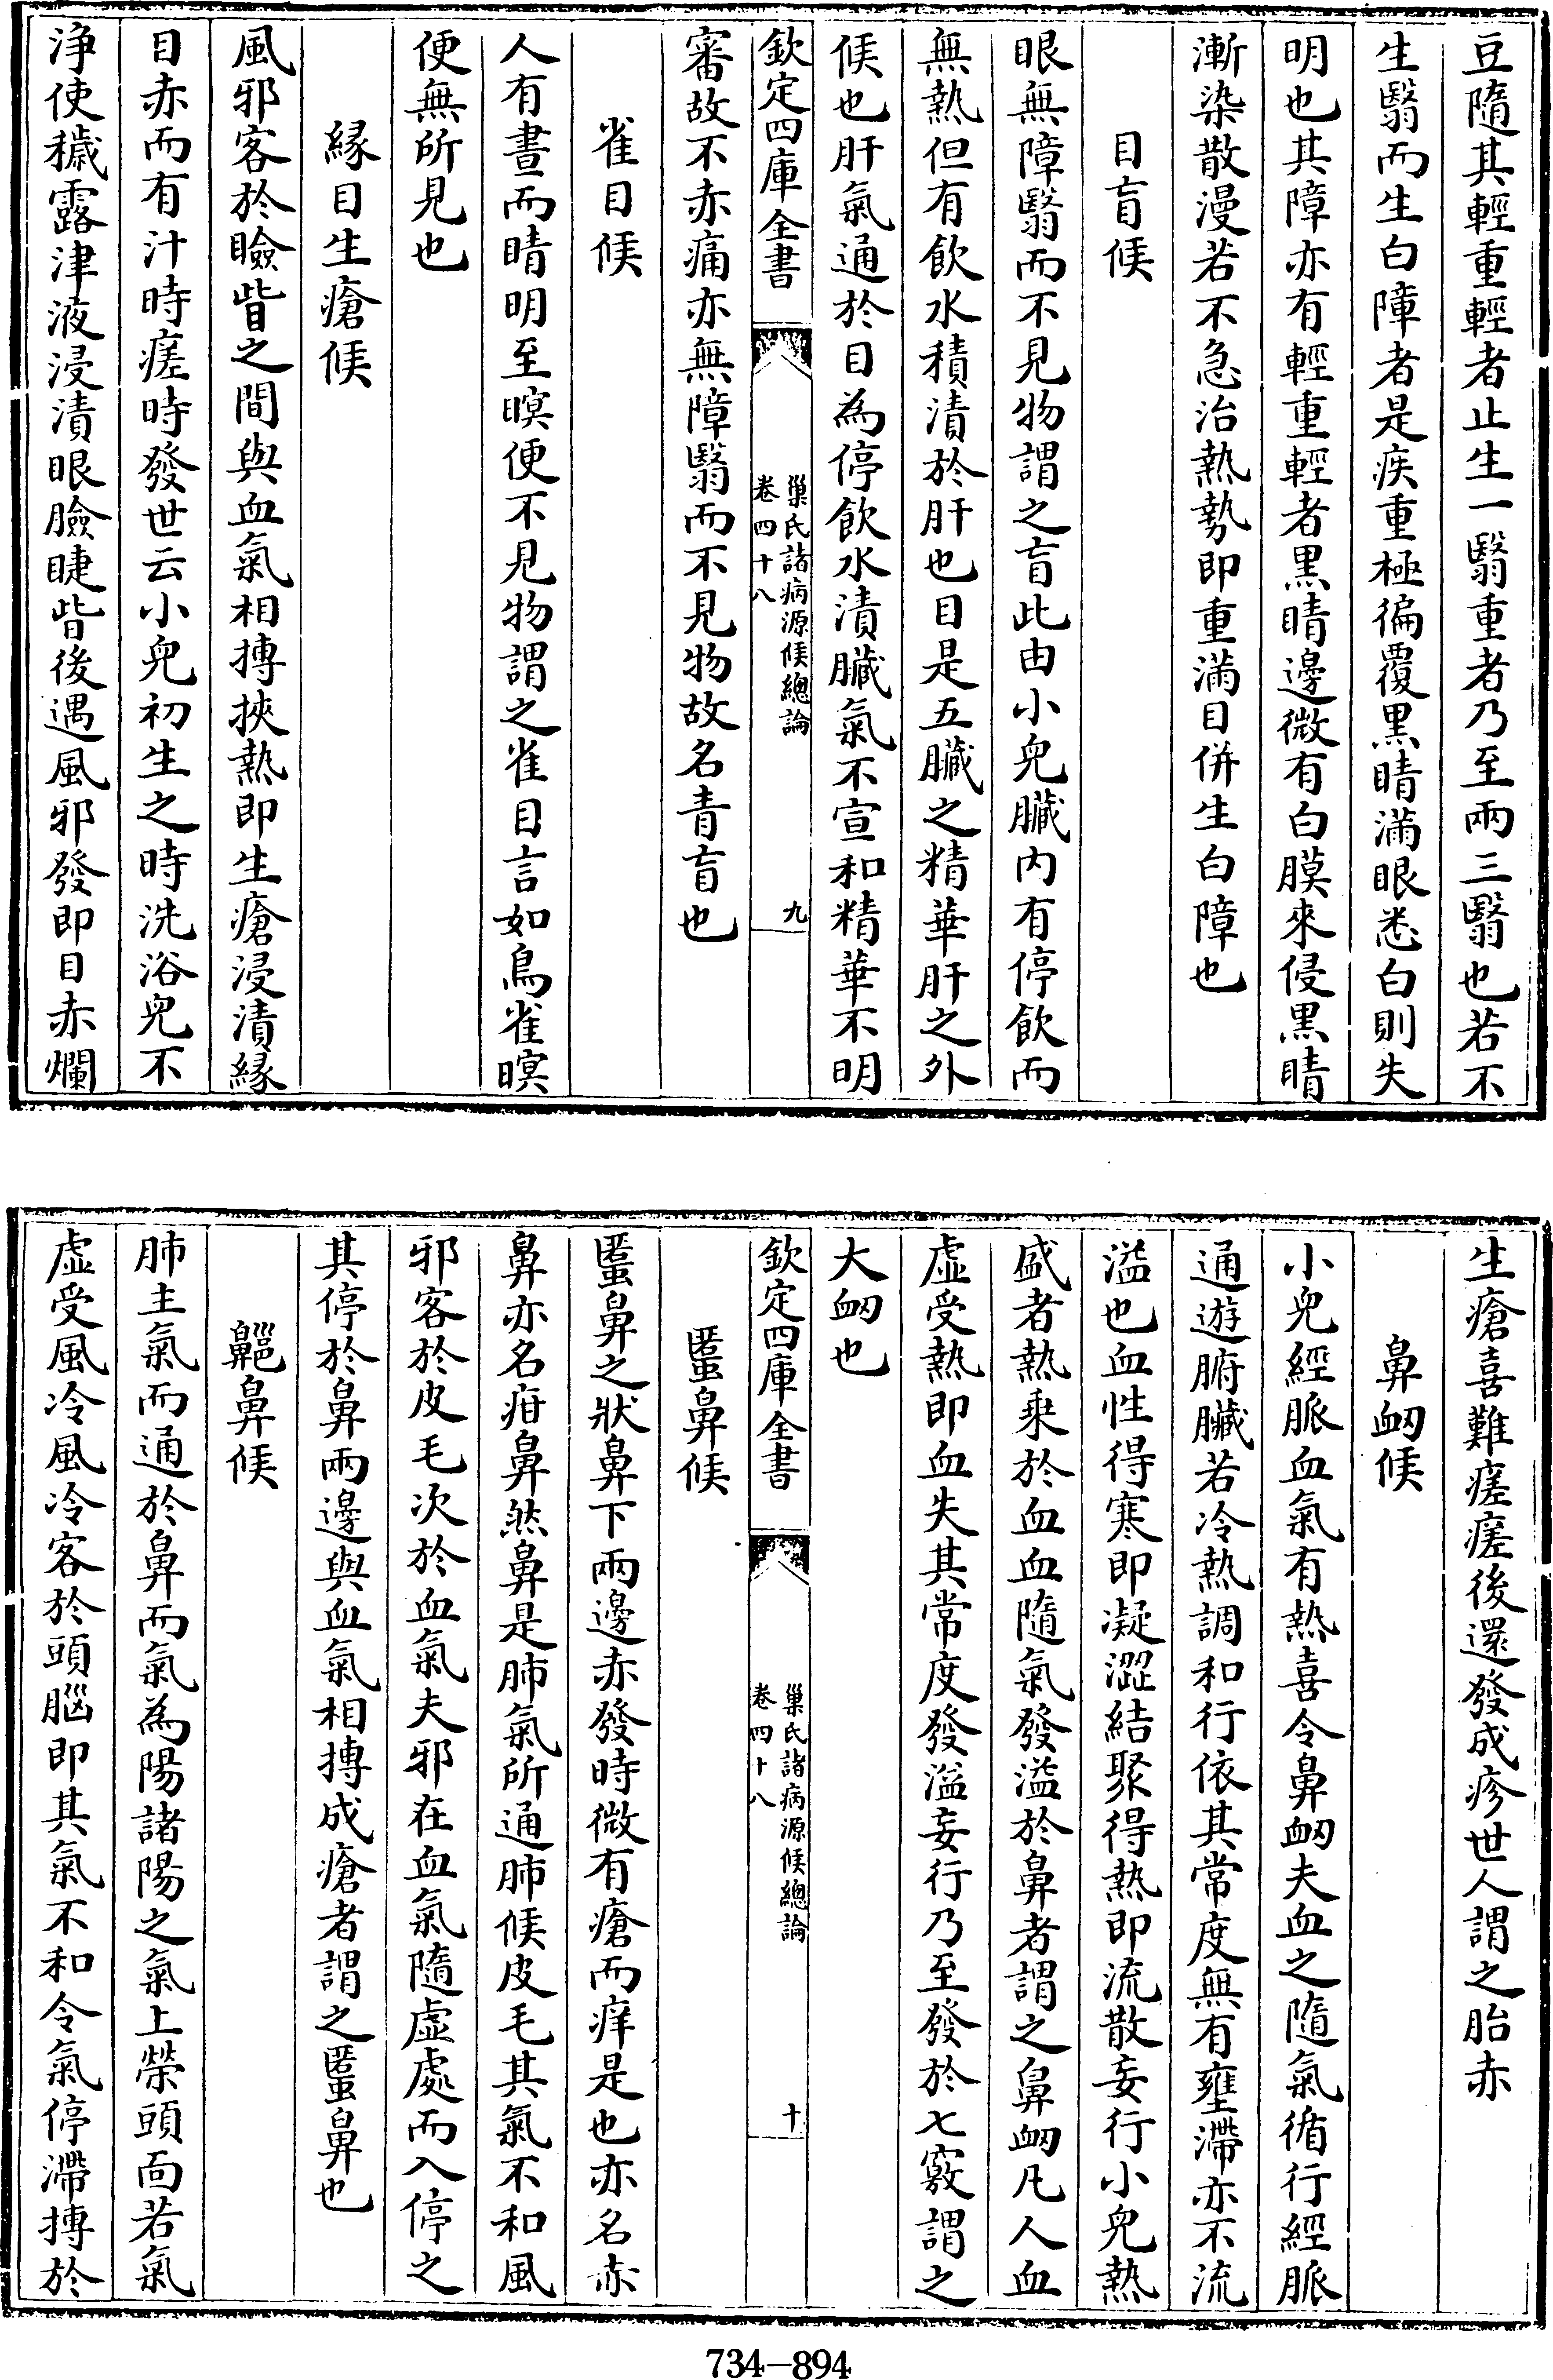 豆隨其輕重輕者止生一翳重者乃至兩三翳也若不
生翳而生白障者是疾重極徧覆黒睛滿眼悉白則失
明也其障亦有輕重輕者黒睛邊微有白膜來侵黒睛
漸染散漫若不急治熱勢即重滿目併生白障也
目盲候
眼無障翳而不見物謂之盲此由小兒臟内有停飲而
無熱但有飲水積漬於肝也目是五臟之精華肝之外
候也肝氣通於目為停飲水漬臟氣不宣和精華不明
欽定四庫全書
巢氏諸病源候總論
卷四十八
九
審故不赤痛亦無障翳而不見物故名青盲也
雀目候
人有晝而睛明至暝便不見物謂之雀目言如鳥雀暝
便無所見也
緣目生瘡候
風邪客於瞼眥之間與血氣相摶挾熱即生瘡浸漬緣
目赤而有汁時瘥時發世云小兒初生之時洗浴兒不
淨使穢露津液浸漬眼臉睫眥後遇風邪發即目赤爛
生瘡喜難瘥瘥後還發成疹世人謂之胎赤
鼻衂候
小兒經脈血氣有熱喜令鼻衂夫血之隨氣循行經脈
通遊腑臟若冷熱調和行依其常度無有壅滯亦不流
溢也血性得寒即凝澀結聚得熱即流散妄行小兒熱
盛者熱乗於血血隨氣發溢於鼻者謂之鼻衂凡人血
虛受熱即血失其常度發溢妄行乃至發於七竅謂之
大衂也
欽定四庫全書
巢氏諸病源候總論
卷四十八
十
䘌鼻候
䘌鼻之狀鼻下兩邊赤發時微有瘡而痒是也亦名赤
鼻亦名疳鼻然鼻是肺氣所通肺候皮毛其氣不和風
邪客於皮毛次於血氣夫邪在血氣隨虛處而入停之
其停於鼻兩邊與血氣相摶成瘡者謂之䘌鼻也
齆鼻候
肺主氣而通於鼻而氣為陽諸陽之氣上榮頭面若氣
虛受風冷風冷客於頭腦即其氣不和令氣停滯摶於
734—894